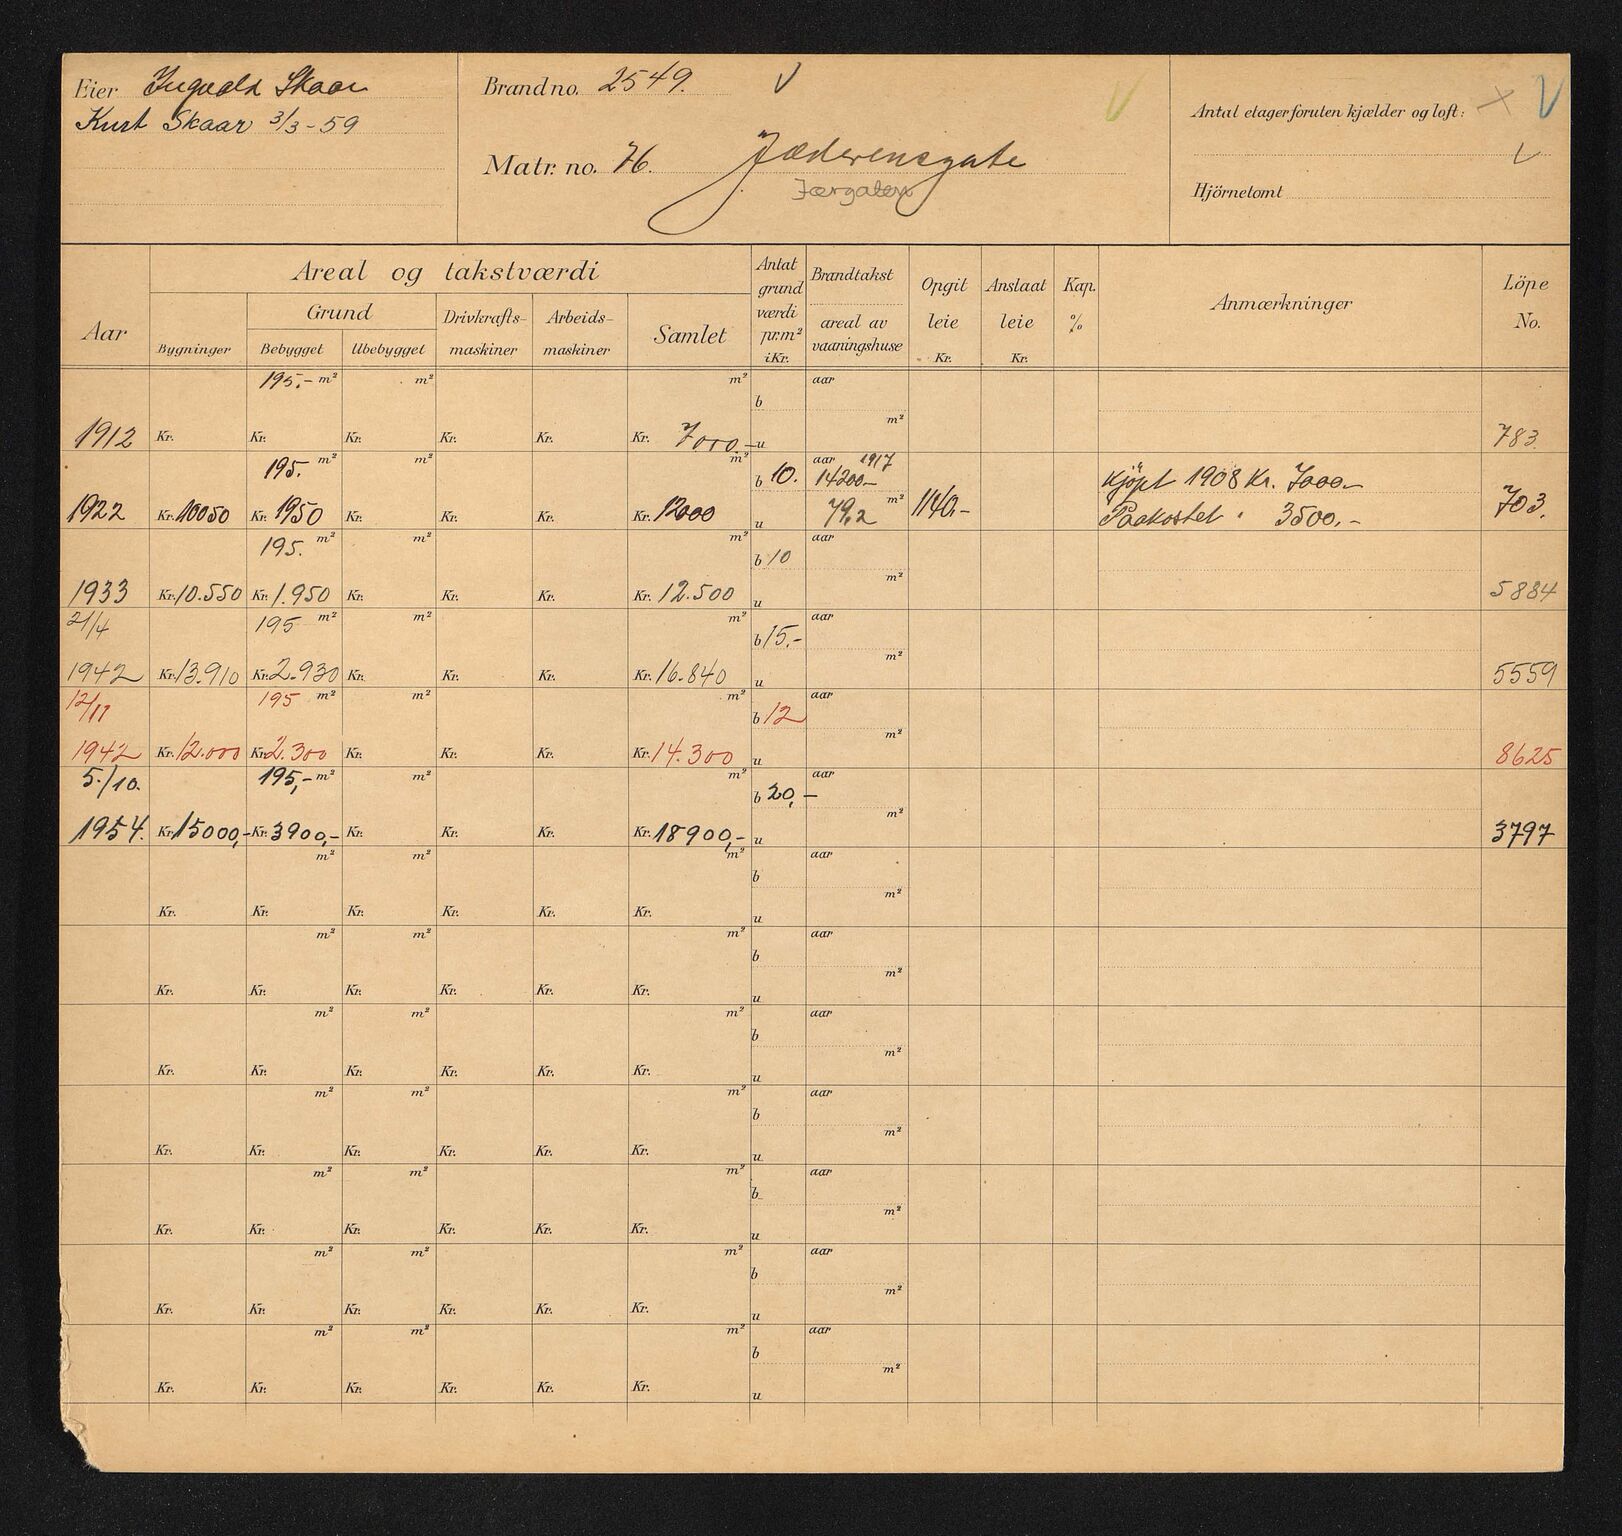 Eier Ingvald Skaar
Kurt Skaar 3/3-59
Brand no. 2549. V
Matr. no. 76. Jæderensgate
Jærgaten
Antal etager foruten kjælder og loft:
Hjörnetomt
Aar
Areal og takstværdi
Bygninger
Grund
Bebygget Ubebygget
Drivkrafts-
maskiner
Arbeids-
maskiner
Samlet
Antat
grund
værdi
pr.m²
i Kr.
Brandtakst
areal av
vaaningshuse
Opgit
leie
Kr.
Anslaat
leie
Kr.
Kap.
%
Anmærkninger
Löpe
No.
195.- m² m² m² aar
b
m²
1912 Kr. Kr. Kr. Kr. Kr. Kr. 7000.- u 783.
195. m² m² m² b 10. aar 1917
14200.- Kjöpt 1908 Kr. 7000.-
1922 Kr. 10050 Kr. 1950 Kr. Kr. Kr. Kr. 12000 u 79,2 m² 1140.- Paakostet " 3500.- 703.
195. m² m² m² aar
b 10
m²
1933 Kr. 10.550 Kr. 1.950 Kr. Kr. Kr. Kr. 12.500 u 5884
21/4 195 m² m² m² aar
b 15.-
m²
1942 Kr. 13.910 Kr. 2.930 Kr. Kr. Kr. Kr. 16.840 u 5559
12/11 195 m² m² m² aar
b 12
m²
1942 Kr. 12.000 Kr. 2.300 Kr. Kr. Kr. Kr. 14.300 u 8625
5./10. 195,- m² m² m² aar
b 20,-
m²
1954. Kr. 15000,- Kr. 3900,- Kr. Kr. Kr. Kr. 18900,- u 3797
m² m² m² aar
b
m²
Kr. Kr. Kr. Kr. Kr. Kr. u
m² m² m² aar
b
m²
Kr. Kr. Kr. Kr. Kr. Kr. u
m² m² m² aar
b
m²
Kr. Kr. Kr. Kr. Kr. Kr. u
m² m² m² aar
b
m²
Kr. Kr. Kr. Kr. Kr. Kr. u
m² m² m² aar
b
m²
Kr. Kr. Kr. Kr. Kr. Kr. u
m² m² m² aar
b
m²
Kr. Kr. Kr. Kr. Kr. Kr. u
m² m² m² aar
b
m²
Kr. Kr. Kr. Kr. Kr. Kr. u